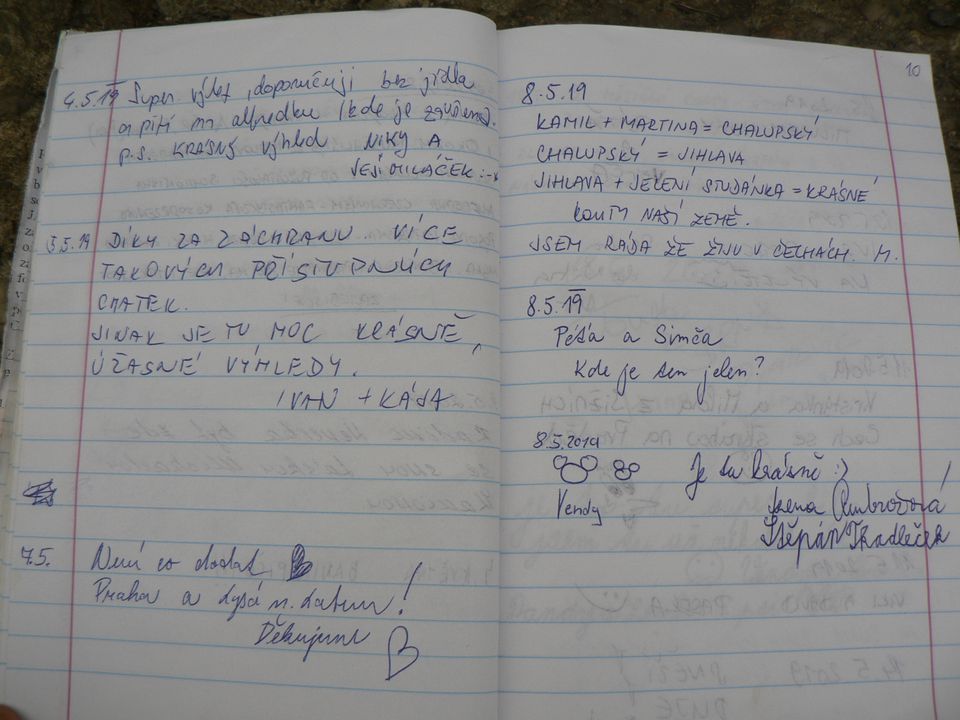 4.5.19 Super výlet, doporučuji bez jídla
a pití na alfredku (kde je zavřeno).
p.s. KRÁSNÝ výhled NIKY A
JEJÍ MILÁČEK :-*
5.5.19 DÍKY ZA ZÁCHRANU. VÍCE
TAKOVÝCH PŘÍSTUPNÝCH
CHATEK.
JINAK JE TU MOC KRÁSNĚ,
ÚŽASNÉ VÝHLEDY.
IVAN + KÁJA
7.5. Není co dodat
Praha a Lysá n. Labem!
Děkujeme
10
8.5.19
KAMIL + MARTINA = CHALUPSKÝ
CHALUPSKÝ = JIHLAVA
JIHLAVA + JELENÍ STUDÁNKA = KRÁSNÉ
KOUTY NAŠÍ ZEMĚ.
JSEM RÁDA ŽE ŽIJU V ČECHÁCH. M.
8.5.19
Péťa a Simča
Kde je ten jelen?
8.5.2019
Vendy
Je tu krásně :)
Irena Ambrožová
Štěpán Tkadleček